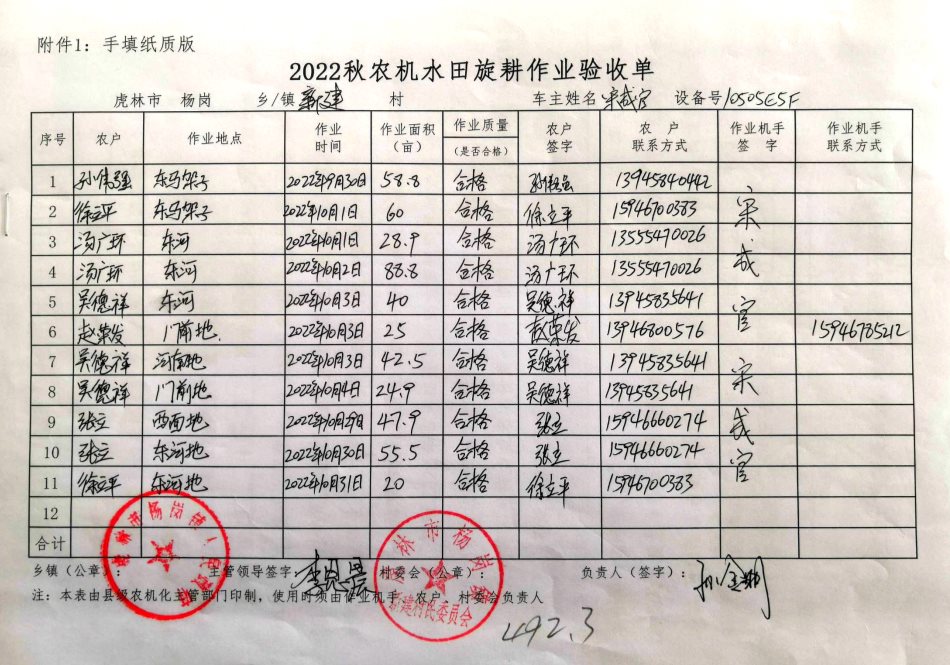 附件1：手填纸质版
2022秋农机水田旋耕作业验收单
虎林市 杨岗 乡/镇 新建 村 车主姓名 宋成官 设备号 10505E5F
序号 农户 作业地点 作业时间 作业面积（亩） 作业质量（是否合格） 农户签字 农户联系方式 作业机手签字 作业机手联系方式
1 孙伟强 东马架子 2022年9月30日 58.8 合格 孙伟强 13945840442
2 徐立平 东马架子 2022年10月1日 60 合格 徐立平 15946700383 宋
3 汤广环 东河 2022年10月1日 28.9 合格 汤广环 13555470026
4 汤广环 东河 2022年10月2日 88.8 合格 汤广环 13555470026 成
5 吴德祥 东河 2022年10月3日 40 合格 吴德祥 13945835641 官
6 赵荣发 门前地 2022年10月3日 25 合格 赵荣发 13946800576 15946785212
7 吴德祥 河南地 2022年10月3日 42.5 合格 吴德祥 13945835641 宋
8 吴德祥 门前地 2022年10月4日 24.9 合格 吴德祥 13945835641
9 张立 西面地 2022年10月29日 47.9 合格 张立 15946660274 成
10 张立 东河地 2022年10月30日 55.5 合格 张立 15946660274 官
11 徐立平 东河地 2022年10月31日 20 合格 徐立平 15946700383
12
合计
乡镇（公章）： 主管领导签字： 村委会（公章）： 负责人（签字）：
注：本表由县级农机化主管部门印制，使用时须由作业机手、农户、村委会负责人
虎林市杨岗镇人民政府
虎林市杨岗镇
新建村民委员会
492.3